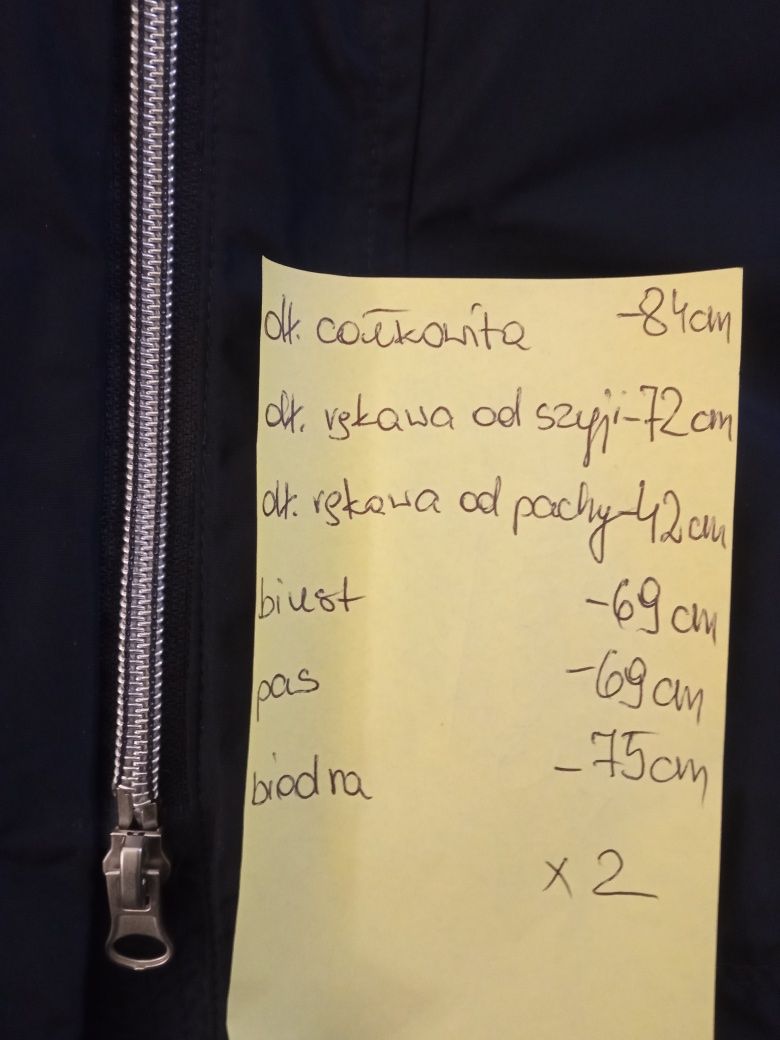 dł. całkowita -84cm
dł. rękawa od szyji-72cm
dł. rękawa od pachy-42cm
biust -69cm
pas -69cm
biodra -75cm
x2